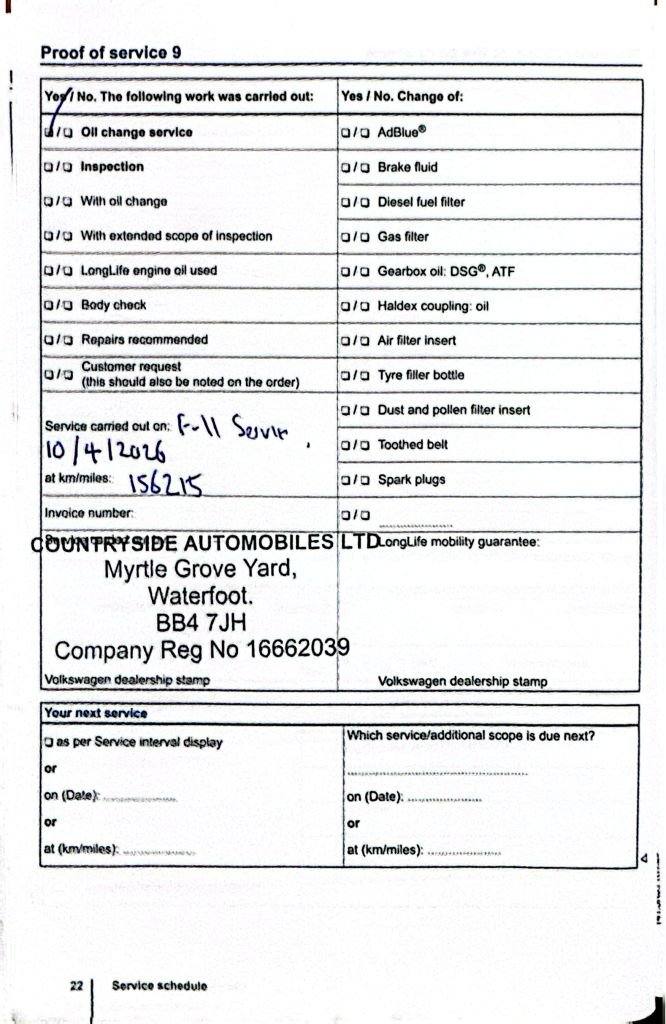 Proof of service 9
Yes / No. The following work was carried out:
❑ / ❑ Oil change service
❑ / ❑ Inspection
❑ / ❑ With oil change
❑ / ❑ With extended scope of inspection
❑ / ❑ LongLife engine oil used
❑ / ❑ Body check
❑ / ❑ Repairs recommended
❑ / ❑ Customer request
(this should also be noted on the order)
Service carried out on: Full Service
10/4/2026
at km/miles: 156215
Invoice number:
COUNTRYSIDE AUTOMOBILES LTD
Myrtle Grove Yard,
Waterfoot.
BB4 7JH
Company Reg No 16662039
Volkswagen dealership stamp
Yes / No. Change of:
❑ / ❑ AdBlue®
❑ / ❑ Brake fluid
❑ / ❑ Diesel fuel filter
❑ / ❑ Gas filter
❑ / ❑ Gearbox oil: DSG®, ATF
❑ / ❑ Haldex coupling: oil
❑ / ❑ Air filter insert
❑ / ❑ Tyre filler bottle
❑ / ❑ Dust and pollen filter insert
❑ / ❑ Toothed belt
❑ / ❑ Spark plugs
❑ / ❑
LongLife mobility guarantee:
Volkswagen dealership stamp
Your next service
❑ as per Service interval display
or
on (Date):
or
at (km/miles):
Which service/additional scope is due next?
on (Date):
or
at (km/miles):
22 Service schedule